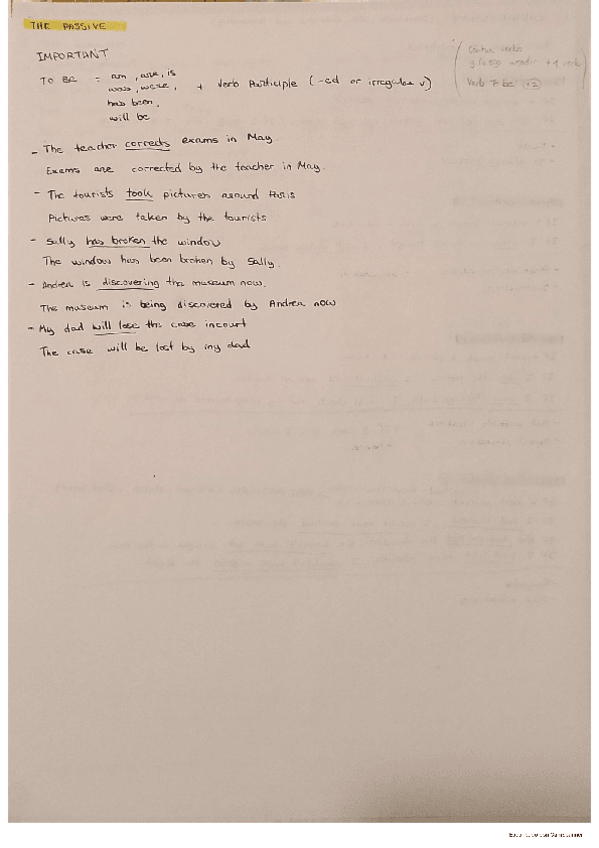 THE PASSIVE
IMPORTANT
TO BE = am, are, is
was, were, + Verb Participle (-ed or irregular v)
has been,
will be
verbs
verb
Verb To be +2
- The teacher corrects exams in May.
Exams are corrected by the teacher in May.
- The tourists took pictures around Paris
Pictures were taken by the tourists
- Sally has broken the window
The window has been broken by Sally.
- Andrea is discovering the museum now.
The museum is being discovered by Andrea now
- My dad will lose the case in court
The case will be lost by my dad